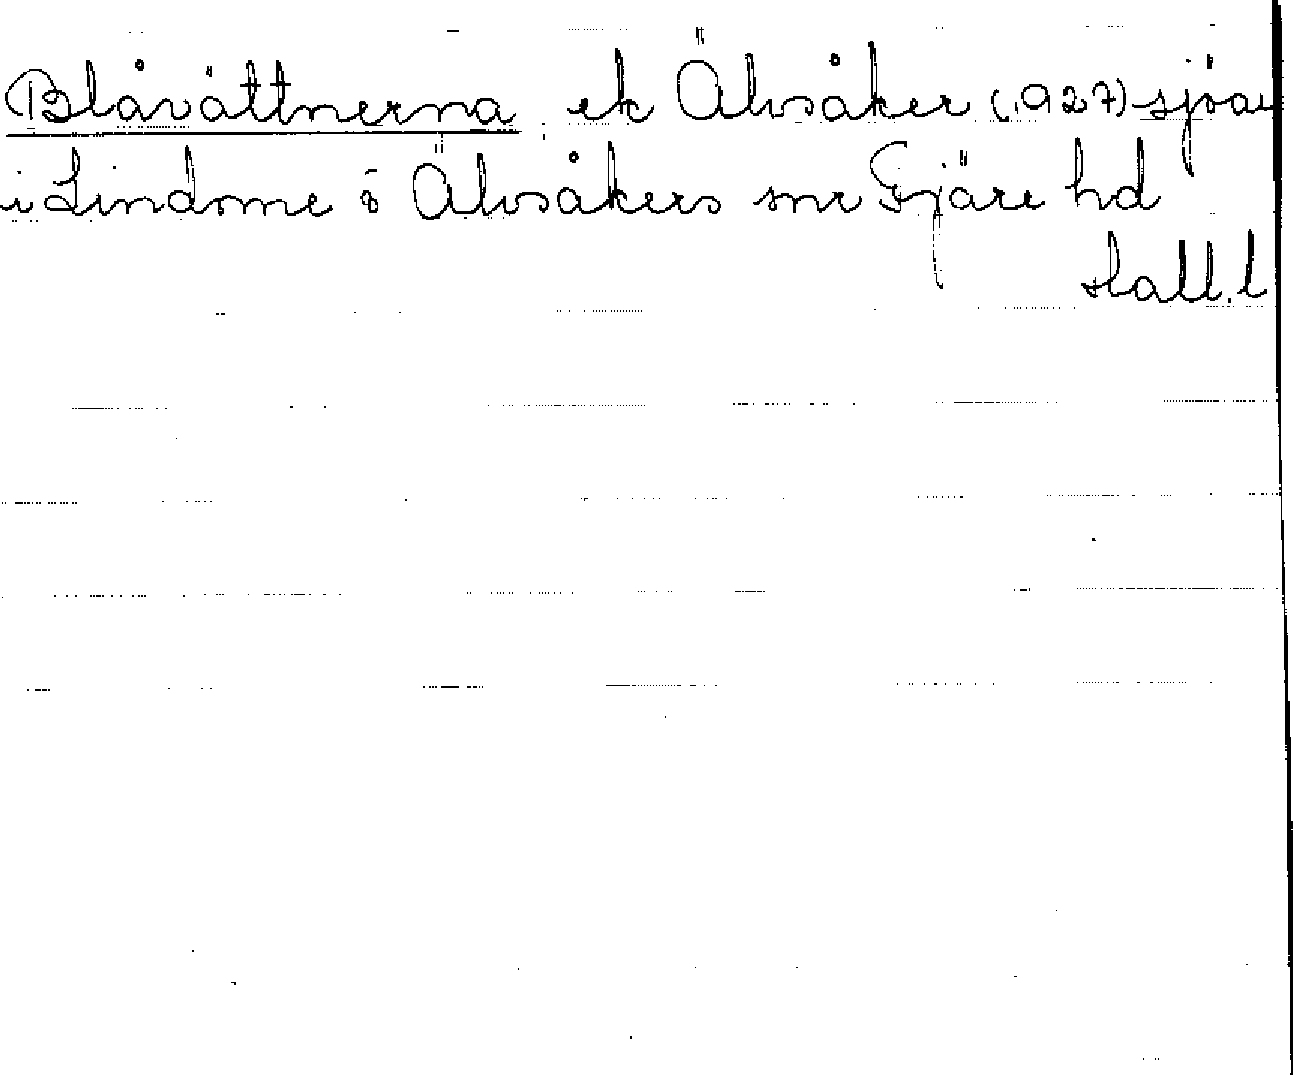 Blåvättnerna ek Älvsåker (1927) sjöar
i Lindome o Älvsåkers snr Fjäre hd
Hall. l